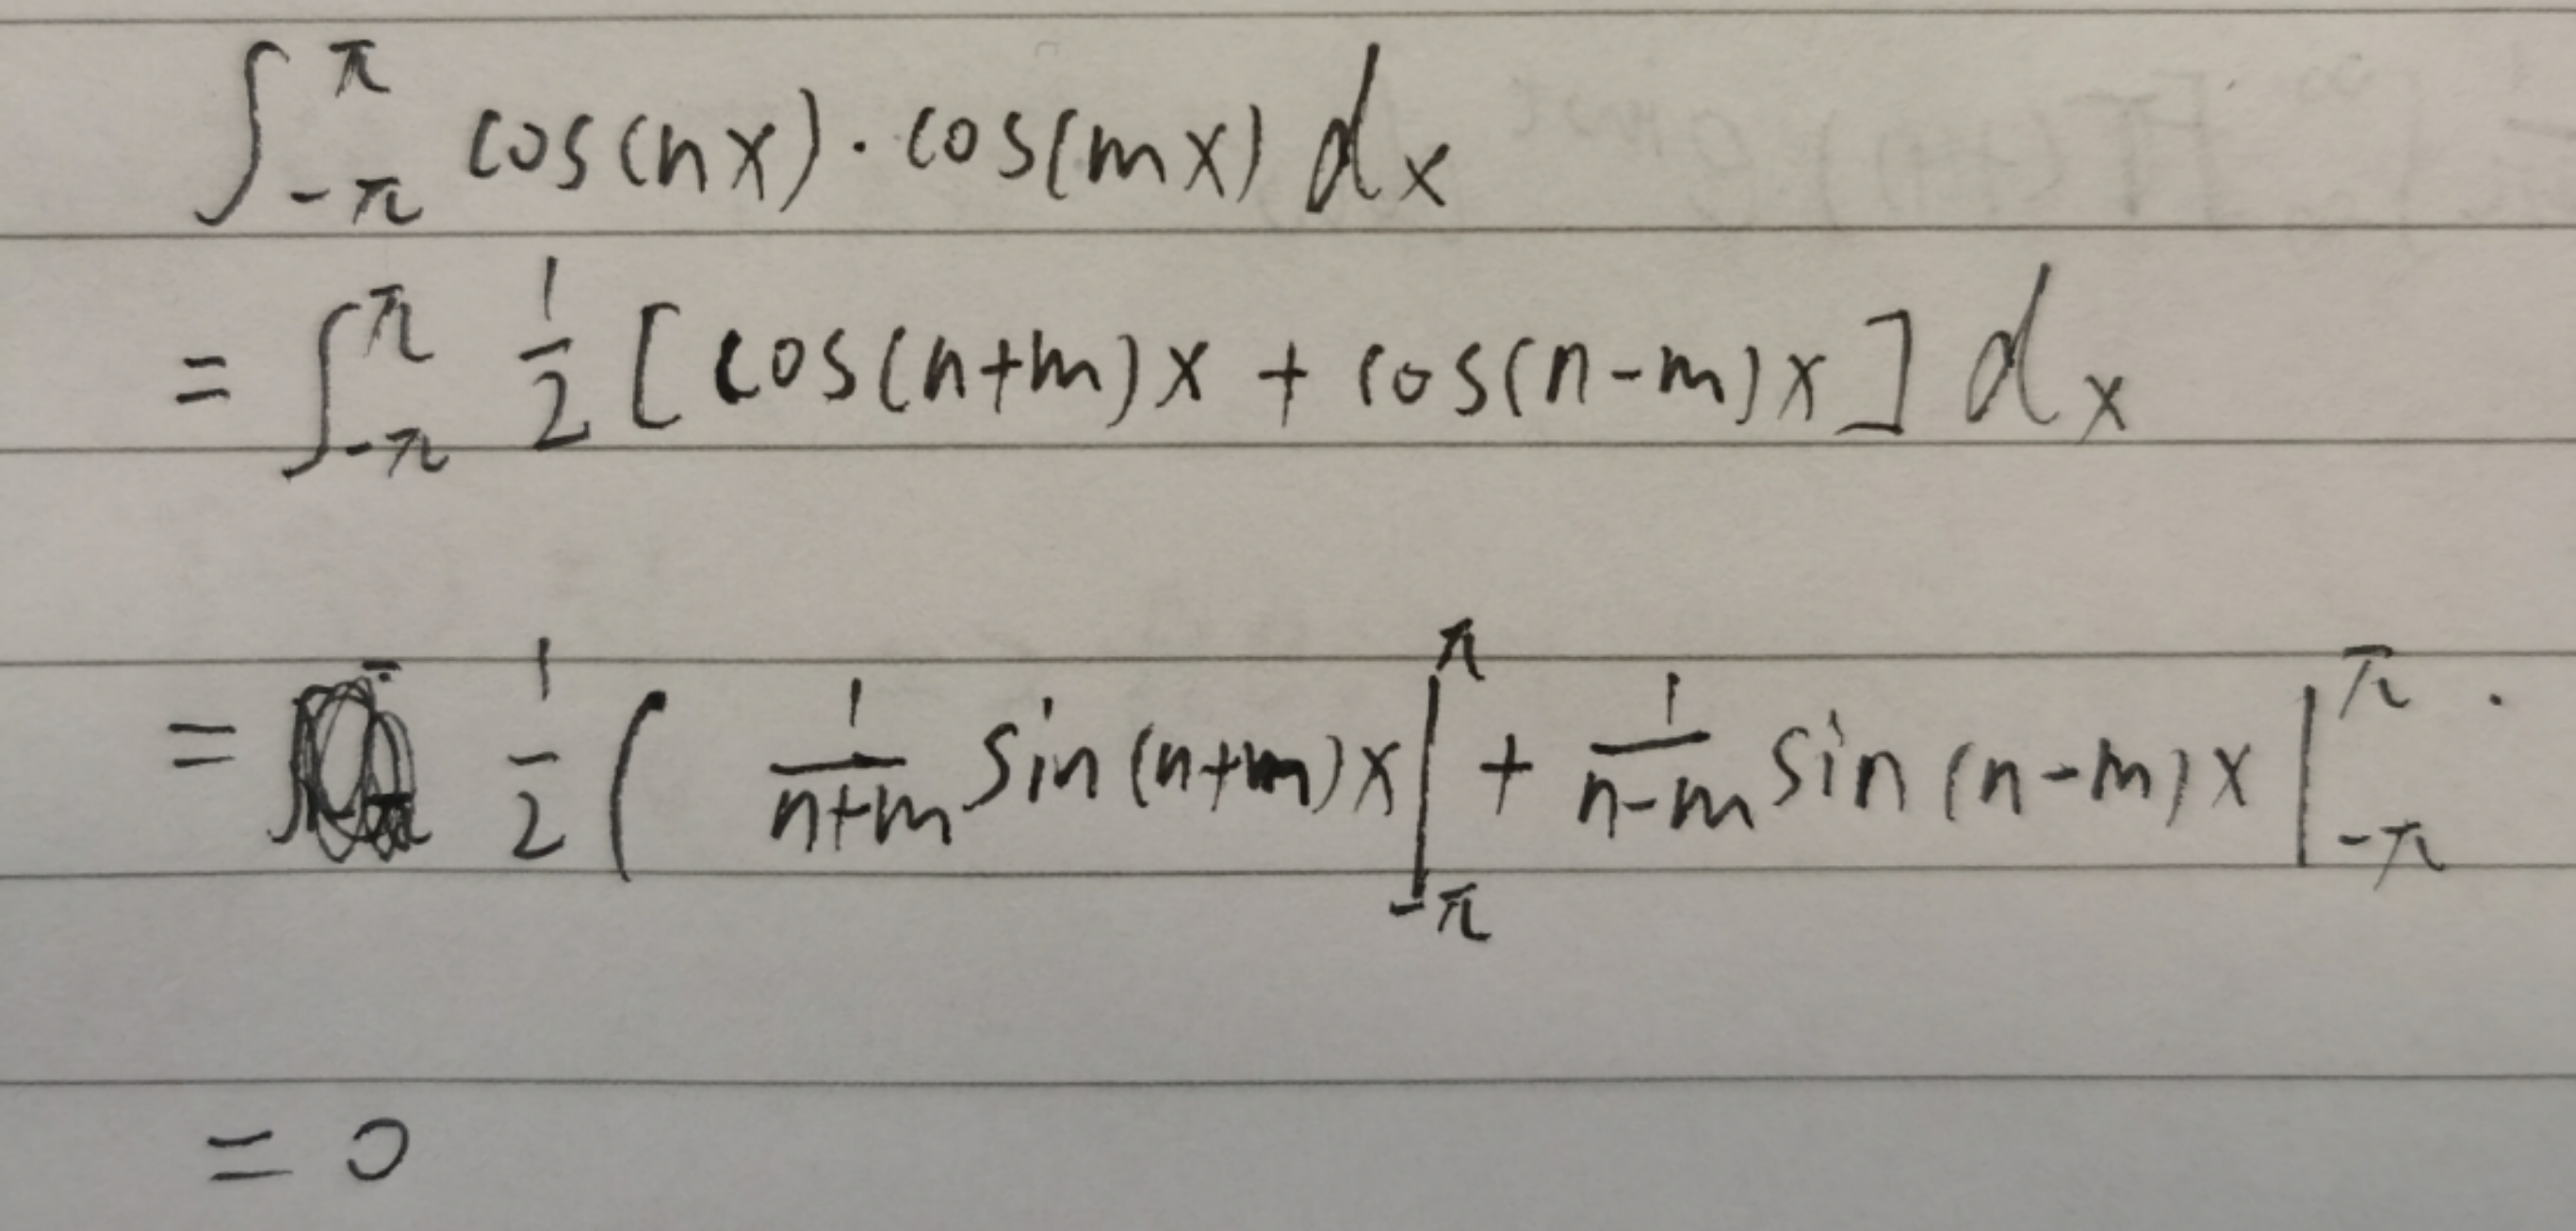 ∫_{-π}^{π} cos(nx)·cos(mx) dx
= ∫_{-π}^{π} 1/2 [cos(n+m)x + cos(n-m)x] dx
= 1/2 ( 1/(n+m) sin(n+m)x |_{-π}^{π} + 1/(n-m) sin(n-m)x |_{-π}^{π}
= 0